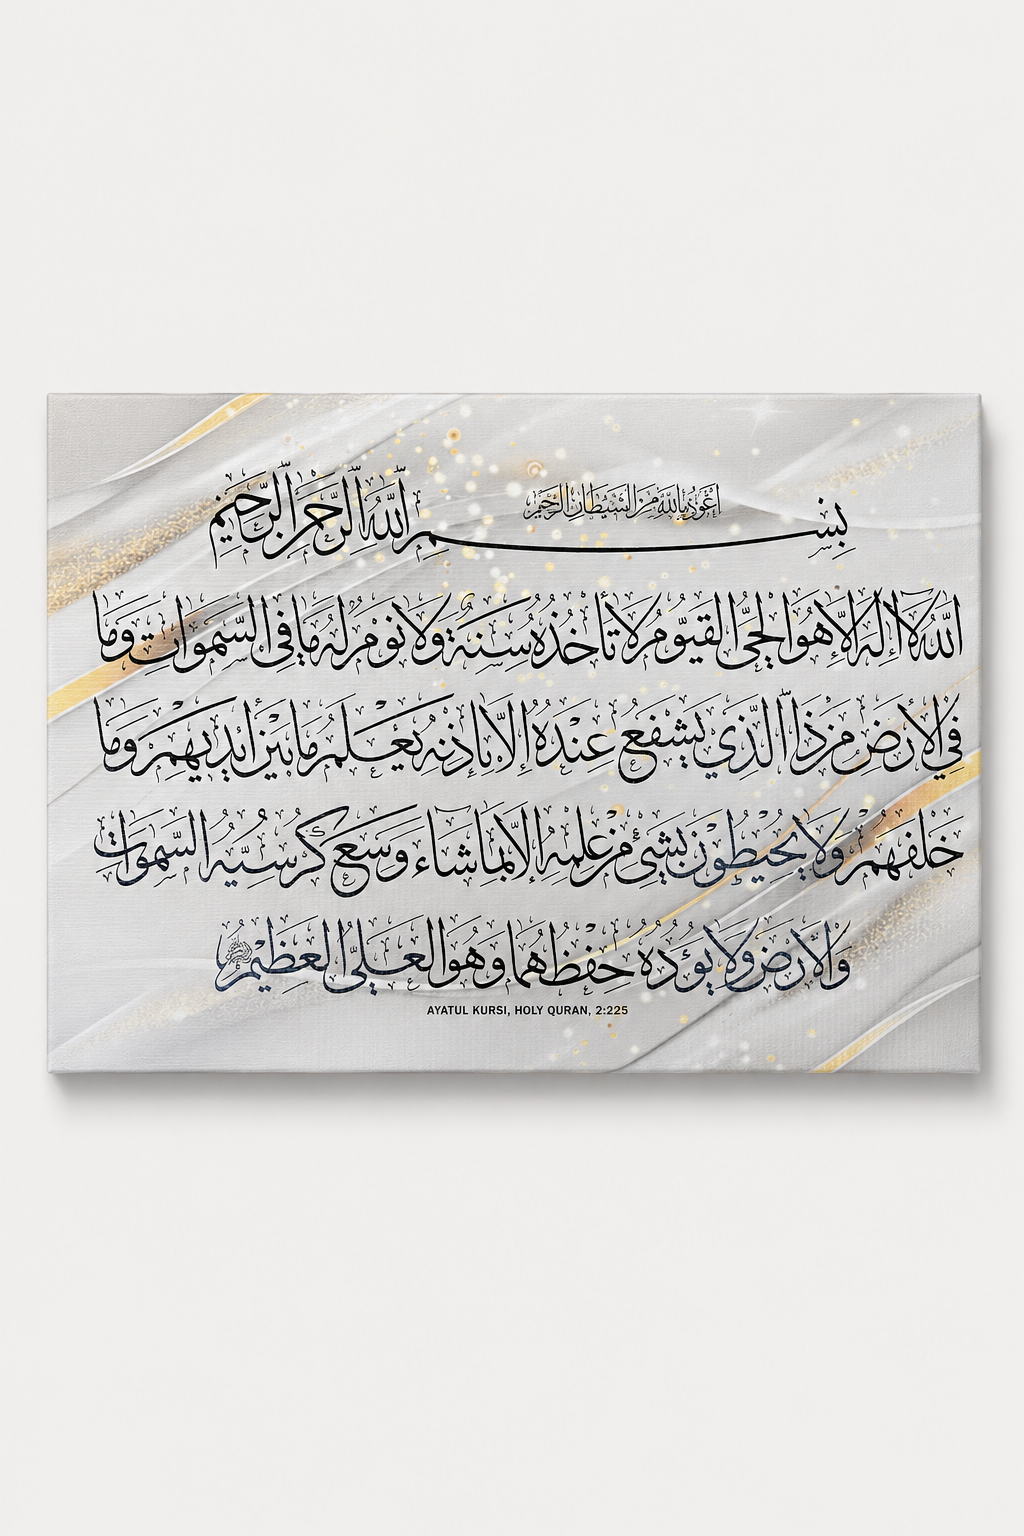 اعوذ بالله من الشيطان الرجيم
بسم الله الرحمن الرحيم
الله لا اله الا هو الحي القيوم لا تأخذه سنة ولا نوم له ما في السموات وما
في الارض من ذا الذي يشفع عنده الا باذنه يعلم ما بين ايديهم وما
خلفهم ولا يحيطون بشيء من علمه الا بما شاء وسع كرسيه السموات
والارض ولا يؤده حفظهما وهو العلي العظيم
AYATUL KURSI, HOLY QURAN, 2:225